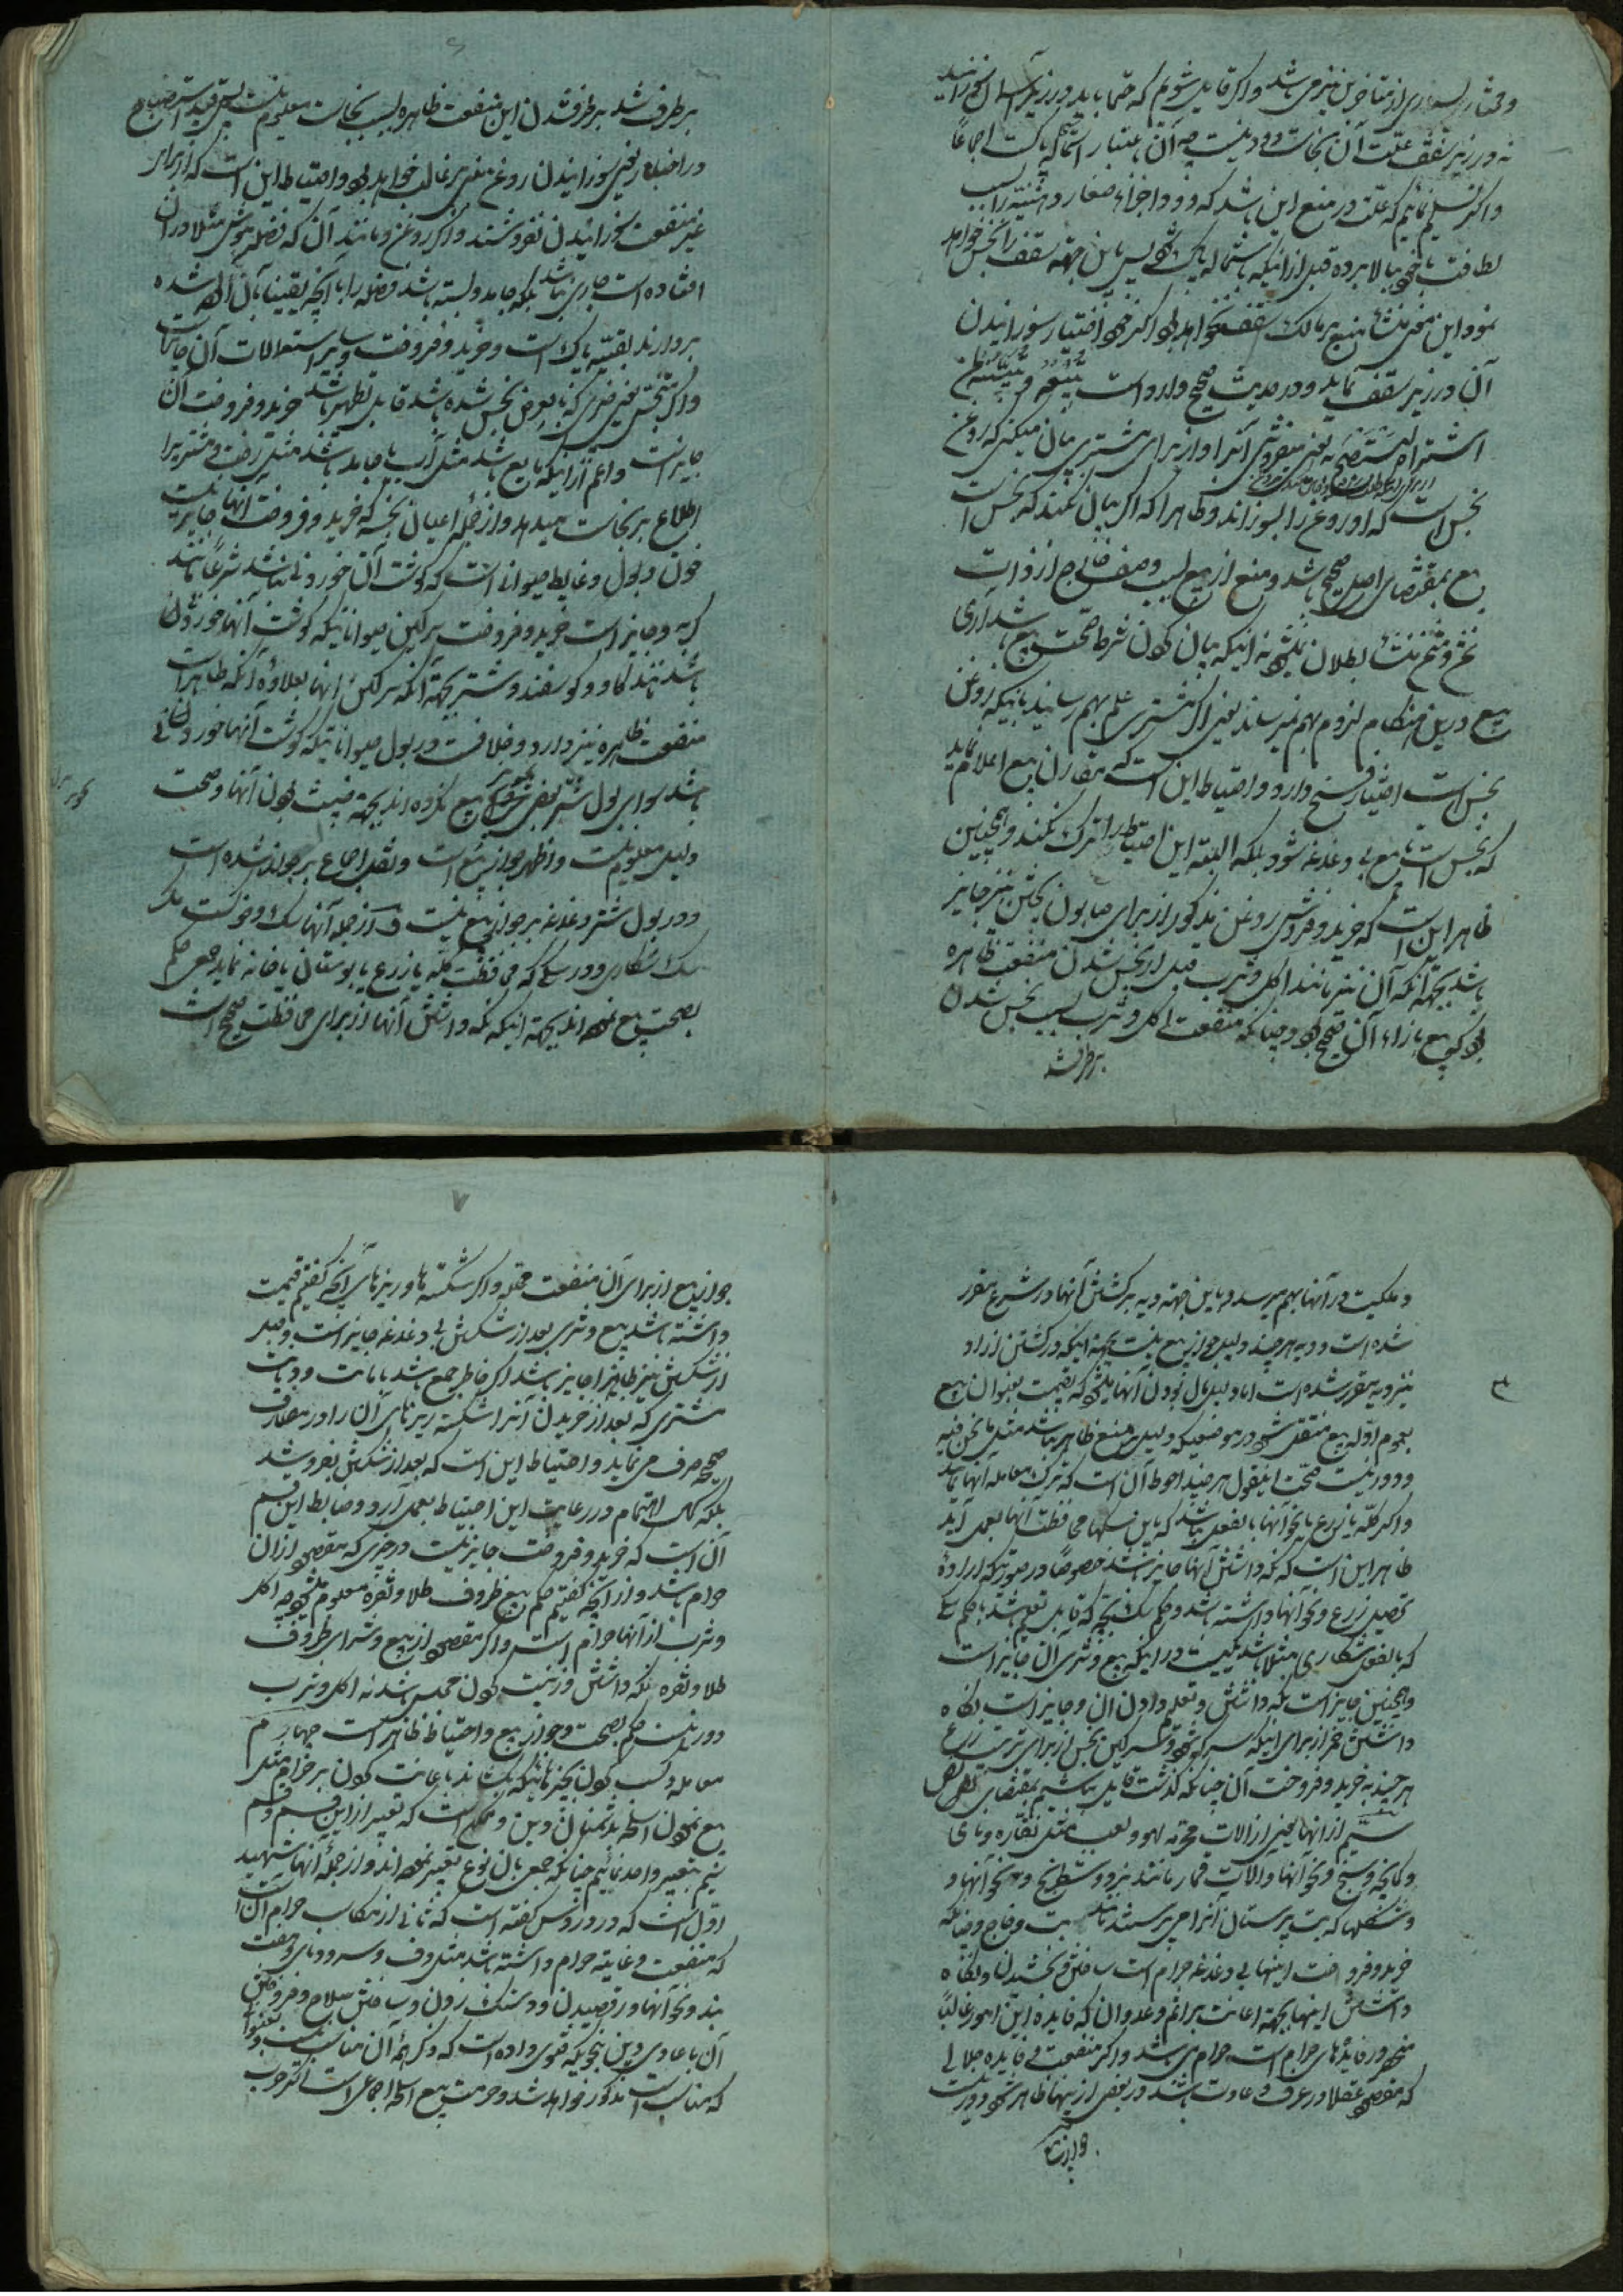 و مختار بسیاری از متاخرین نیز می باشد و اگر قایل شویم که حتما باید در زیر آسمان سوزانید
نه در زیر سقف علت آن نجاست دود نیست چه آن باعتبار استحاله پاک است اجماعا
و اگر تسلیم نمائیم که علت در منع این باشد که دود اجزاء صغار دهنیه را بسبب
لطافت با خود بالا برده قبل از آنکه باستحاله پاک شود پس باین جهته سقف را نجس خواهد
نمود این معنی منشأ منع مالک سقف نخواهد بود اگر خود اختیار سوزانیدن
آن در زیر سقف نماید و در حدیث صحیح وارد است
اشتراه لیستصبح به یعنی میفروشی آنرا و از برای مشتری بیان میکنی که روغن
نجس است که او روغن را بسوزاند و ظاهرا که اگر بیان نکند که نجس است
بیع بمقتضای اصل صحیح باشد و منع از بیع بسبب وصف خارج از ذات
ثمن و مثمن منشأ بطلان نمیشود نه اینکه بیان کردن شرط صحت بیع باشد آری
بیع در این هنگام لزوم بهم نمیرساند یعنی اگر مشتری علم بهم رسانید باینکه روغن
نجس است اختیار فسخ دارد و احتیاط این است که مقارن بیع اعلام نماید
که نجس است تا بیع بی دغدغه شود بلکه البته این احتیاط را ترک نکنند و همچنین
ظاهر این است که خرید و فروش روغن مذکور از برای صابون پختن نیز جایز
باشد بجهته آنکه آن نیز مانند اکل و شرب قبل از نجس شدن منفعت ظاهره
بود که بیع بازاء آن صحیح بود و چنانکه منفعت اکل و شرب بسبب نجس شدن
برطرف شد
۶
برطرف شد برطرف شدن این منفعت ظاهره بسبب نجاست معلوم نیست پس قید استصباح
در اخبار یعنی سوزانیدن روغن مبنی بر غالب خواهد بود و احتیاط این است که از برای
غیر منفعت سوزانیدن نفروشند و اگر روغن و مانند آن که فضله موش مثلا در آن
افتاده است جاری نباشد بلکه جامد و بسته باشد فضله را با آنچه یقینا بآن آلوده شده
بردارند بقیه پاک است و خرید و فروخت و سایر استعمالات آن جایز است
و اگر متنجس یعنی چیزی که بالعرض نجس شده باشد قابل تطهیر باشد خرید و فروخت آن
جایز است و اعم از اینکه مایع باشد مثل آب یا جامد باشد مثل رخت و مشتری را
اطلاع بر نجاست میدهد و از جمله اعیان نجسه که خرید و فروخت آنها جایز نیست
خون و بول و غایط حیوانی است که گوشت آن خوردنی نباشد شرعا مانند
گربه و جایز است خرید و فروخت سرگین حیواناتیکه گوشت آنها خوردنی
باشد مانند گاو و گوسفند و شتر بجهته آنکه سرگین آنها بعلاوه آنکه طاهر است
منفعت ظاهره نیز دارد و خلافست در بول حیواناتیکه گوشت آنها خوردنی
باشد سوای بول شتر بعضی تجویز بیع نکرده اند بجهته خبیث بودن آنها و صحت
دلیل معلوم نیست و اظهر جواز بیع است و نقل اجماع بر جواز شده است
و در بول شتر دغدغه بر جواز بیع نیست و از جمله آنها سگ و خوک است مگر
سگ شکاری و در سگی که محافظت گله یا زرع یا بوستان یا خانه نماید جمعی حکم
بصحت بیع نموده اند بجهته اینکه نگه داشتن آنها از برای محافظت صحیح است
و ملکیت در آنها بهم میرسد و باین جهته دیه بر کشتن آنها در شرع مقرر
شده است و دیه هر چند دلیل جواز بیع نیست بجهته اینکه در کشتن آزاد
نیز دیه مقرر شده است اما دلیل مال بودن آنها میشود که بقیمت بعنوان بیع
بعموم ادله بیع منتقل شود در موضعیکه دلیل بر منع ظاهر نباشد مثل ما نحن فیه
و دور نیست صحت اینقول هر چند احوط آن است که ترک معامله آنها نماید
و اگر گله یا زرع یا نحو آنها بالفعل نباشد که باین سگها محافظت آنها بعمل آید
ظاهر این است که نگه داشتن آنها جایز باشد خصوصا در صورتیکه اراده
تحصیل زرع و نحو آنها داشته باشد و حکم سگ بچه که قابل تعلیم باشد با حکم سگی
که بالفعل شکاری مثلا باشد یکیست در اینکه بیع و شری آن جایز است
و همچنین جایز است نگه داشتن و تعلیم دادن آن و جایز است نگاه
داشتن خمر از برای اینکه سرکه شود و سرگین نجس از برای تربیت زرع
هر چند بخرید و فروخت آن چنانکه گذشت قایل نباشیم بمقتضای نص
سیم از آنها یعنی از آلات محرمه لهو و لعب مثل نقاره و نای
و کمانچه و سنج و نحو آنها و آلات قمار مانند نرد و شطرنج و نحو آنها و
و شکلها که بت پرستان آنرا می پرستند مانند بت و خاج و چنانکه
خرید و فروخت اینها بی دغدغه حرام است ساختن و بخشیدن و نگاه
داشتن اینها بجهته اعانت بر اثم و عدوان که فایده این امور غالبا
منحصر در فایدهای حرام است حرام می باشد و اگر منفعت و فایده حلالی
که مقصود عقلا در عرف و عادت باشد در بعضی از اینها ظاهر شود دور نیست
جواز بیع
۷
جواز بیع از برای آن منفعت محلله و اگر شکسته ها و ریزهای آنچه گفتیم قیمت
داشته باشد بیع و شری بعد از شکستن بی دغدغه جایز است و قبل
از شکستن نیز ظاهرا جایز باشد اگر خاطر جمع باشد بامانت و دیانت
مشتری که بعد از خریدن آنرا شکسته ریزهای آن را در مصارف
صحیحه صرف می نماید و احتیاط این است که بعد از شکستن بفروشد
بلکه کمال اهتمام در رعایت این احتیاط بعمل آرد و ضابط این قسم
آن است که خرید و فروخت جایز نیست در چیزی که مقصود از آن
حرام باشد و از آنچه گفتیم حکم بیع ظروف طلا و نقره معلوم میشود چه اکل
و شرب از آنها حرام است و اگر مقصود از بیع و شرای ظروف
طلا و نقره نگه داشتن و زینت کردن مجلس باشد نه اکل و شرب
دور نیست حکم بصحت و جواز بیع و احتیاط ظاهر است چهارم
معامله و کسب کردن بچیزهائیکه بکشاند باعانت کردن بر حرام مثل
بیع نمودن اسلحه بدشمنان دین و ممکن است که تعبیر از این قسم و قسم
سیم بتعبیر واحد نمائیم چنانکه جمعی بان نوع تعبیر نموده اند و از جمله آنها شهید
اول است که در دروس گفته است که ثانی از مکاسب حرام آن است
که منفعت و غایته حرام داشته باشد مثل دف و سرود و نای و جفت
بند و نحو آنها و رقصیدن و دستک زدن و ساختن سلاح و فروختن
آن باعادی دین بنحویکه فتوی داده است که ذکر همه آن مناسب نیست و بعنوانی
که مناسب است مذکور خواهد شد و حرمت بیع اسلحه اجماعی است اگر حرب